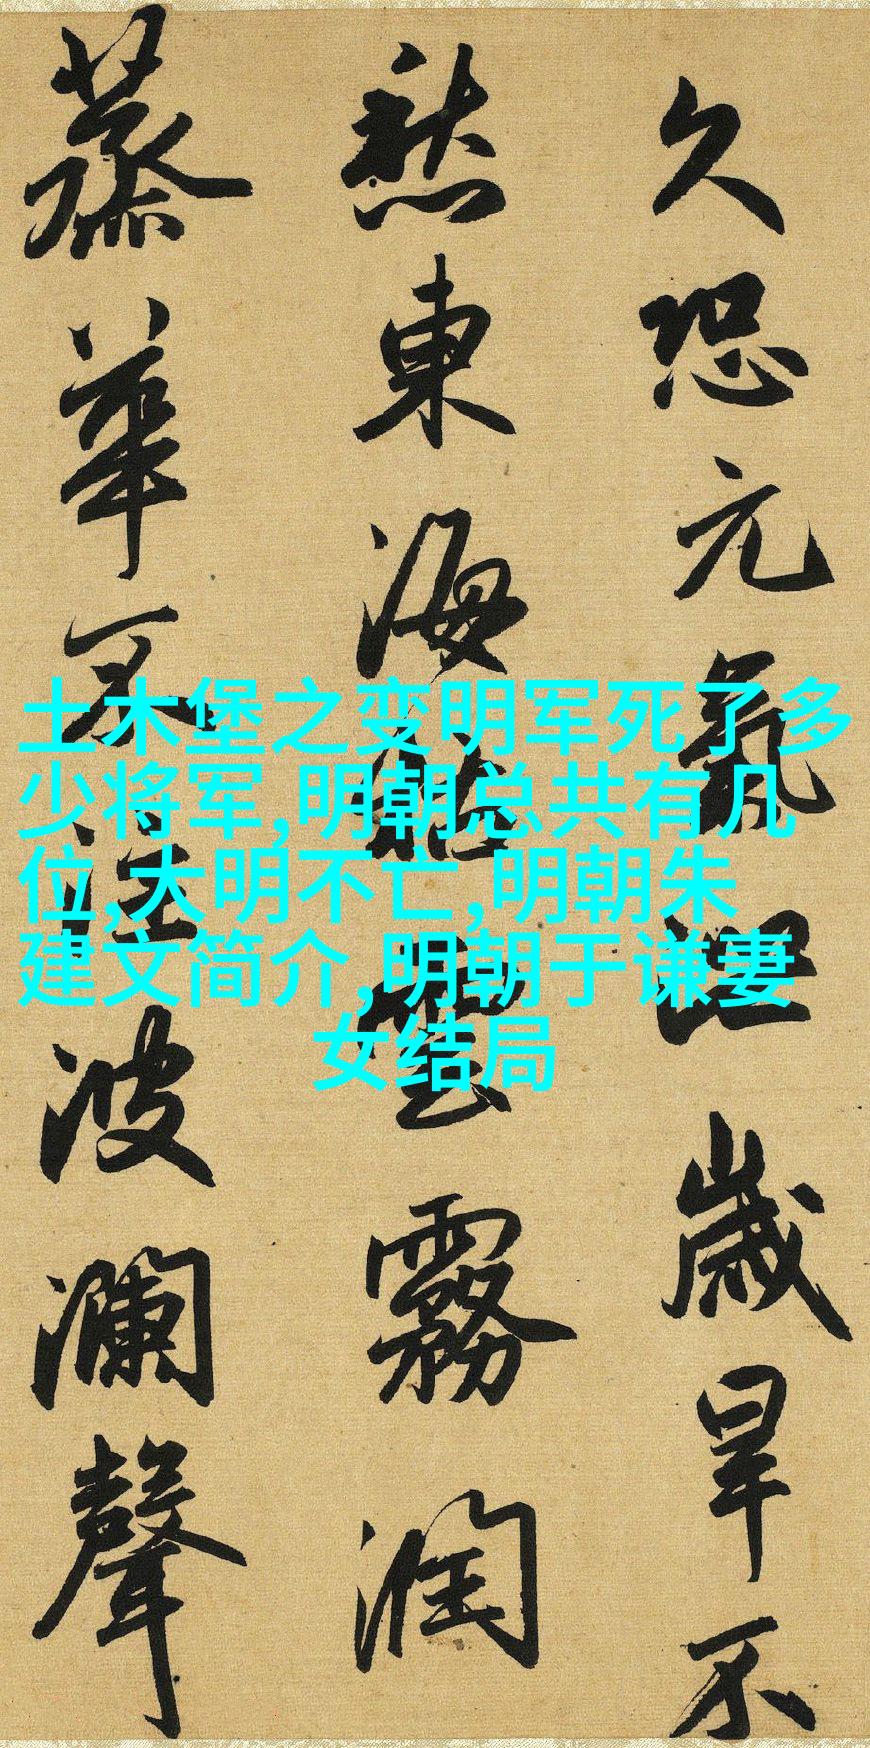 久恐元氣泄歲旱不
愁東海❘雲霧潤
蒸華不注波瀾聲
土木堡之变明军死了多
少将军,明朝总共有几
位,大明不亡,明朝朱
建文简介,明朝于谦妻
女结局